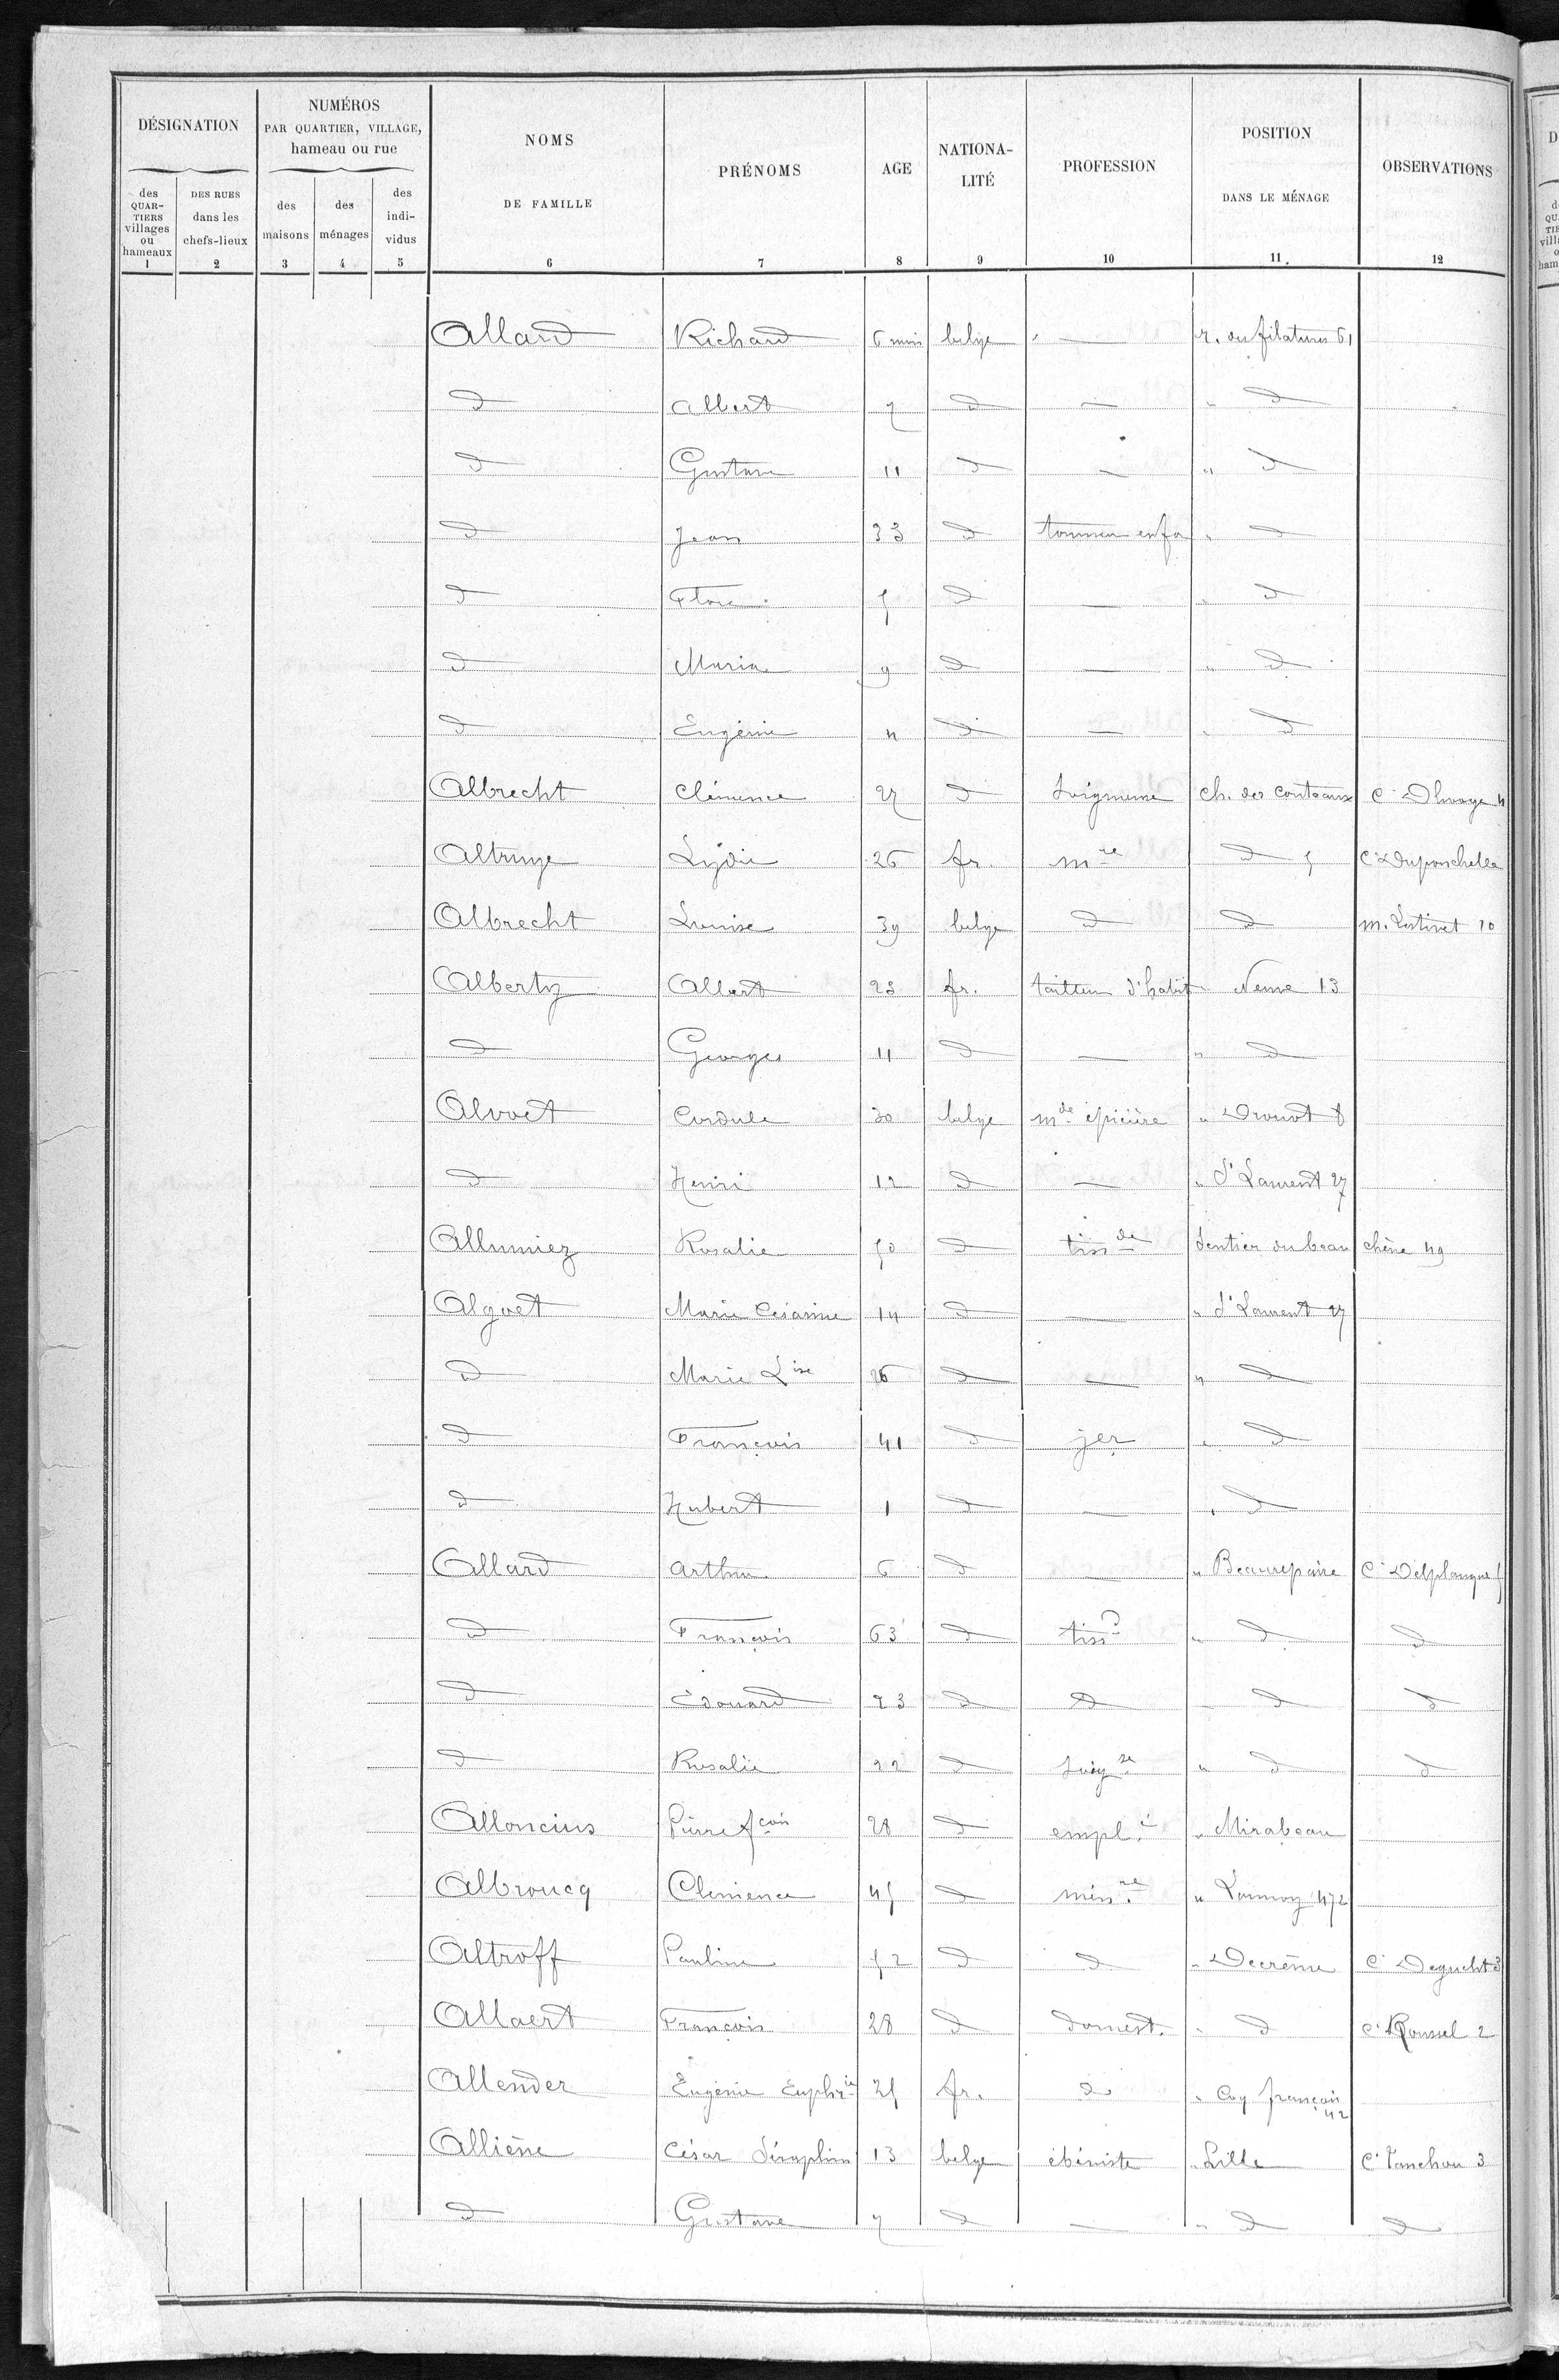 DÉSIGNATION NUMÉROS PAR QUARTIER, VILLAGE, hameau ou rue NOMS DE FAMILLE PRÉNOMS AGE NATIONA-LITÉ PROFESSION POSITION DANS LE MÉNAGE OBSERVATIONS
des QUAR-TIERS villages ou hameaux DES RUES dans les chefs-lieux des maisons des ménages des indi-vidus
1 2 3 4 5 6 7 8 9 10 11 12
Allard Richard 6 mois belge — r. des filatures 61
d Albert 7 d — " d
d Gustave 11 d — " d
d Jean 33 d tourneur en fer " d
d Flore 5 d — " d
d Maria 9 d — " d
d Eugénie 4 d — " d
Albrecht Clémence 27 d Soigneuse ch. des Couteaux c. 4
Altruye Lydie 26 fr. mre d 5 c. Duponchelle
Albrecht Louise 39 belge d d m. 10
Albertz Albert 23 fr. tailleur d'habit Neuve 13
d Georges 11 d — " d
Alvoet Cordule 30 belge mde épicière " Drouot 8
d Henri 12 d — " St Laurent 27
Allumiez Rosalie 50 d tissde Sentier du beau chêne 49
Algoet Marie Césarine 14 d — " St Laurent 27
d Marie Lise 26 d — " d
d François 41 d jer " d
d Hubert 1 d — " d
Allard Arthur 6 d — " Beaurepaire c. Delplanque 5
d François 63 d tissd " d d
d Edouard 23 d d " d d
d Rosalie 22 d soigse " d d
Alloncius Pierre fçois 28 d emplé " Mirabeau
Albroucq Clémence 45 d ménre " Lannoy 472
Altroff Pauline 52 d d " Decrême c. 3
Allaert François 28 d domest. " d c. Roussel 2
Allender Eugénie Euphrie 25 fr. d " Coq français 42
Alliène César Séraphin 13 belge ébéniste " Lille c. 3
d Gustave 7 d — " d d